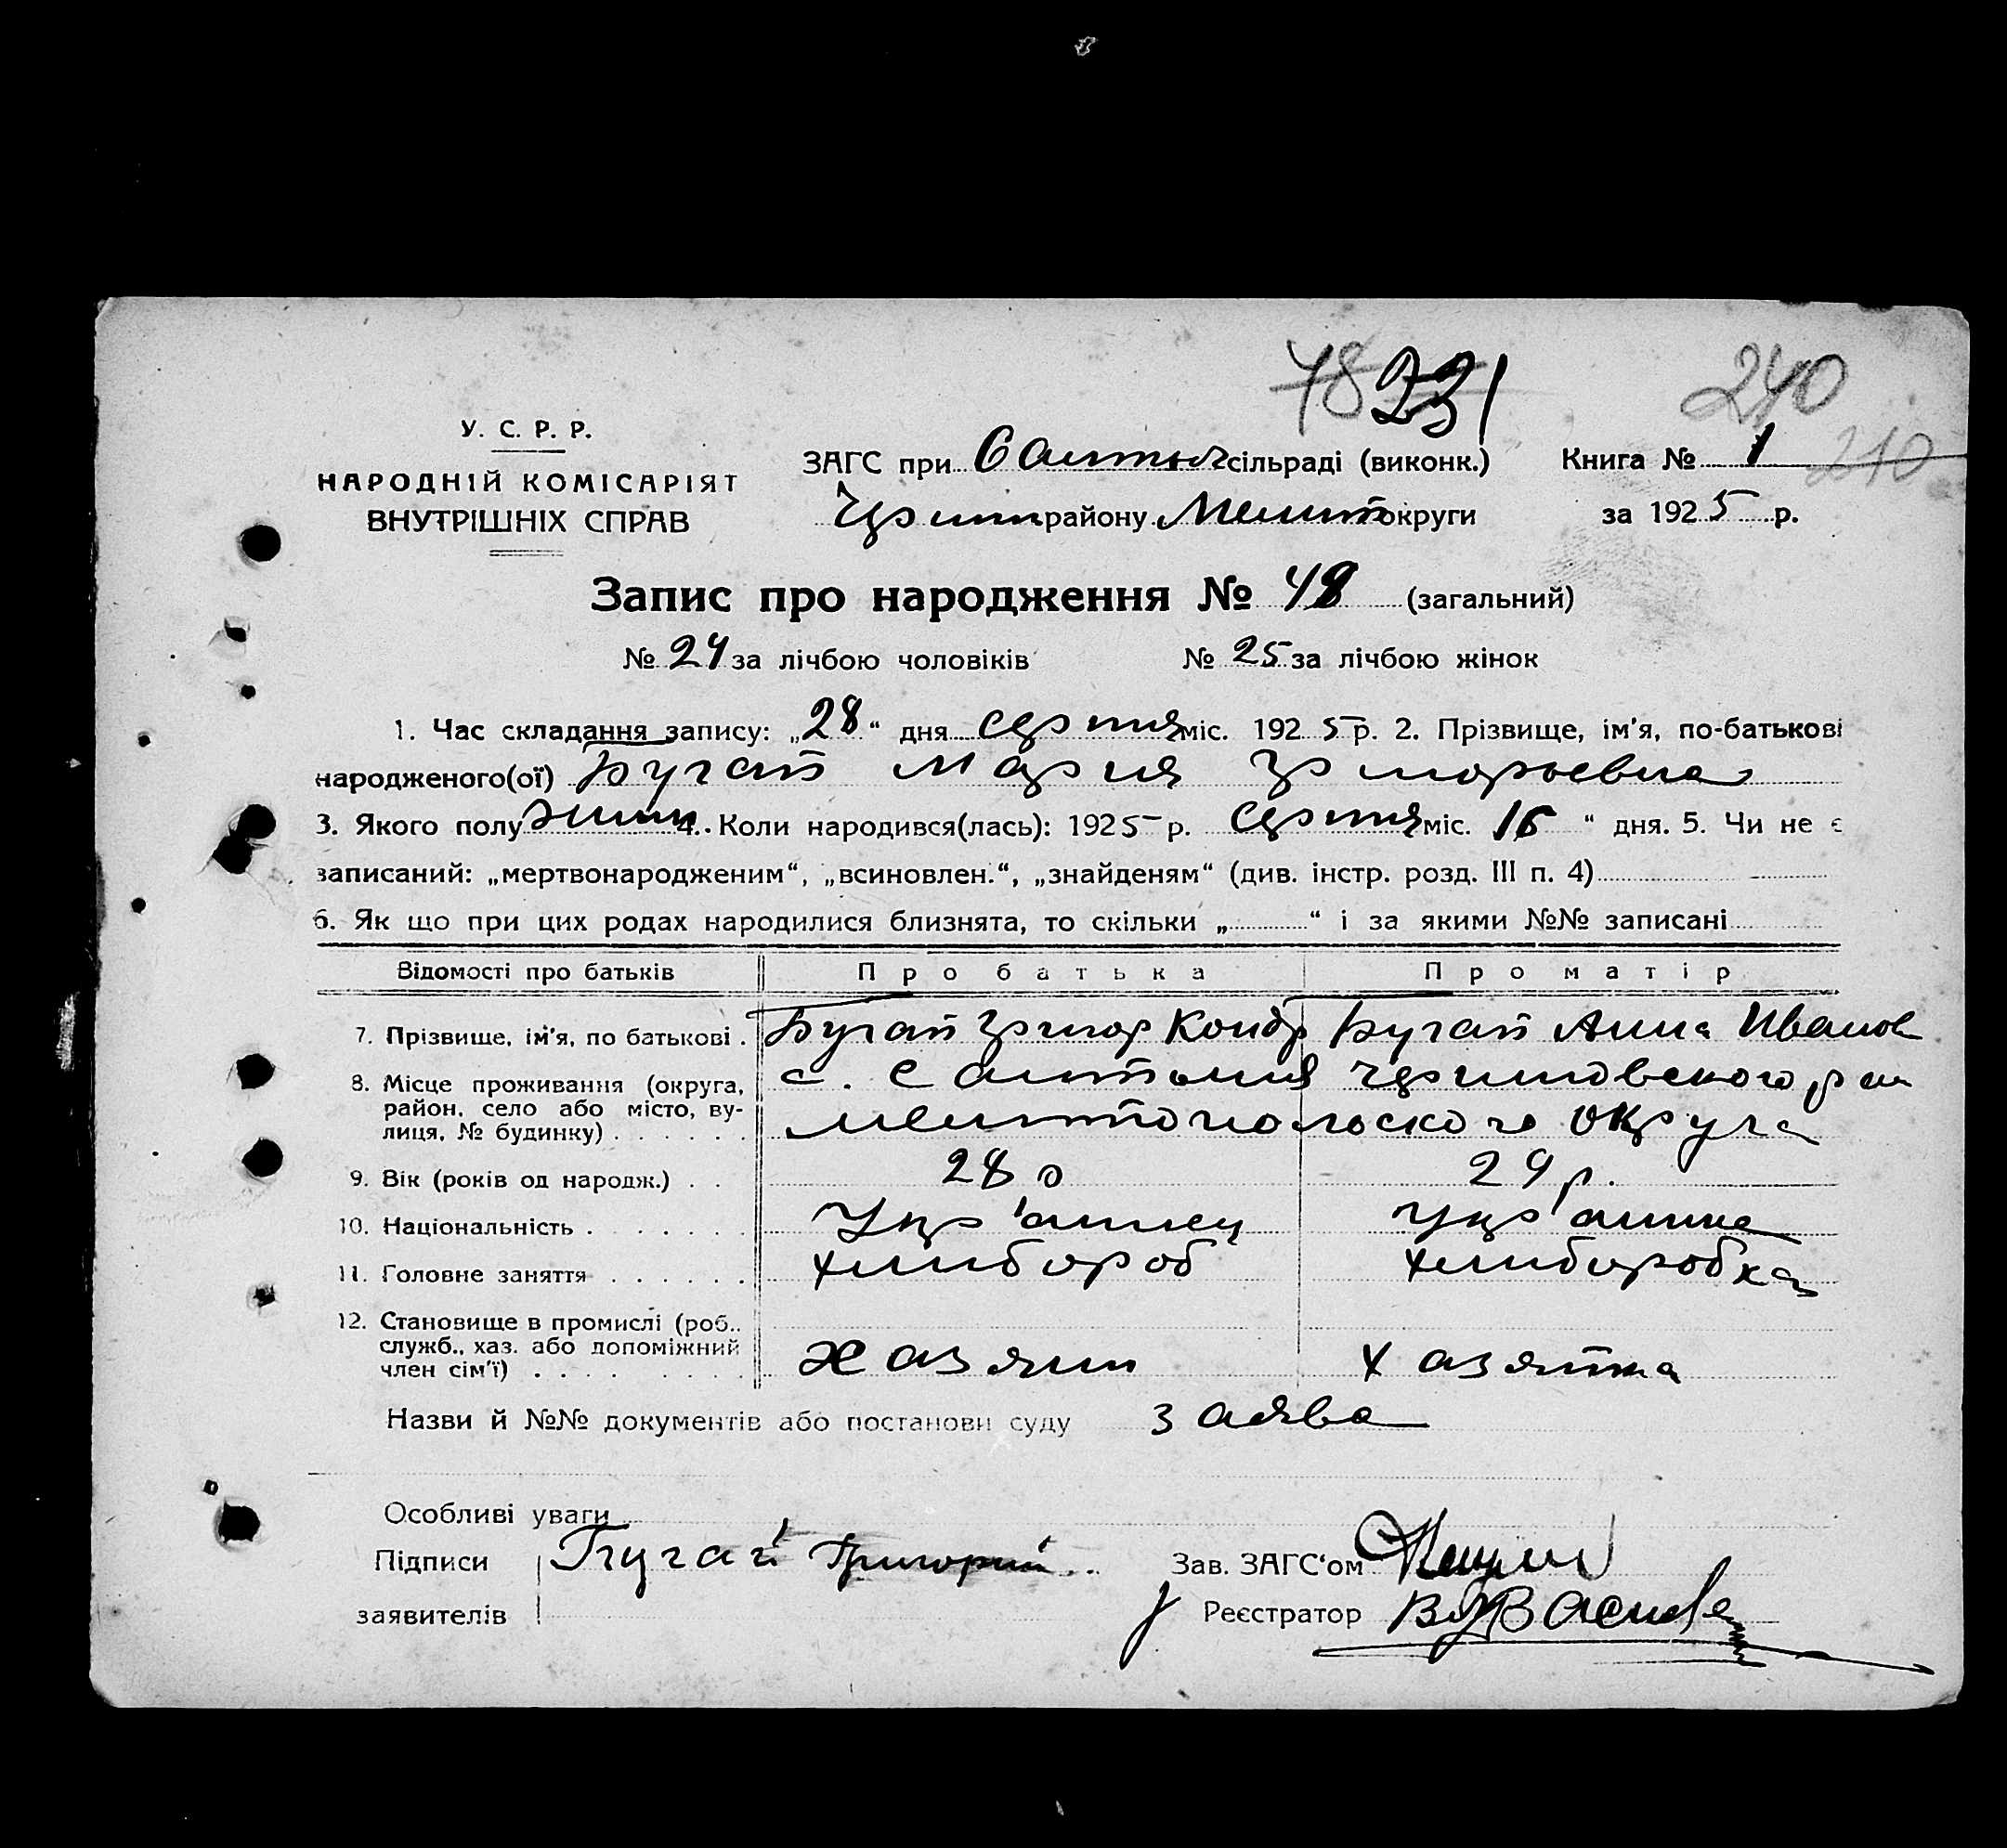 48 231 240
У. С. Р. Р.
НАРОДНІЙ КОМІСАРІЯТ
ВНУТРІШНІХ СПРАВ
ЗАГС при сільраді (виконк.)
району Мелит округи
Книга № 1 210
за 1925 р.
Запис про народження № 48 (загальний)
№ 24 за лічбою чоловіків № 25 за лічбою жінок
1. Час складання запису: „28“ дня серпня міс. 1925 р. 2. Прізвище, ім'я, по-батькові
народженого(ої) Бугай Мария Григорьевна
3. Якого полу жин 4. Коли народився(лась): 1925 р. серпня міс. 16 “ дня. 5. Чи не є
записаний: „мертвонародженим“, „всиновлен.“, „знайденям“ (див. інстр. розд. III п. 4)
6. Як що при цих родах народилися близнята, то скільки „ “ і за якими №№ записані
Відомості про батьків Про батька Про матір
7. Прізвище, ім'я, по батькові . Бугай Григор Кондр Бугай Анна Иванов
8. Місце проживання (округа, район, село або місто, ву-
лиця, № будинку) с.
Мелитопольского округа
9. Вік (років од народж.) 28 р 29 р.
10. Національність Укр'аинец Укр'аинка
11. Головне заняття хлибороб хлиборобка
12. Становище в промислі (роб..
служб., хаз. або допоміжний
член сім'ї) хазяин хазяйка
Назви й №№ документів або постанови суду заява
Особливі уваги
Підписи Бугай Григорий
заявителів
Зав. ЗАГС'ом
Реєстратор